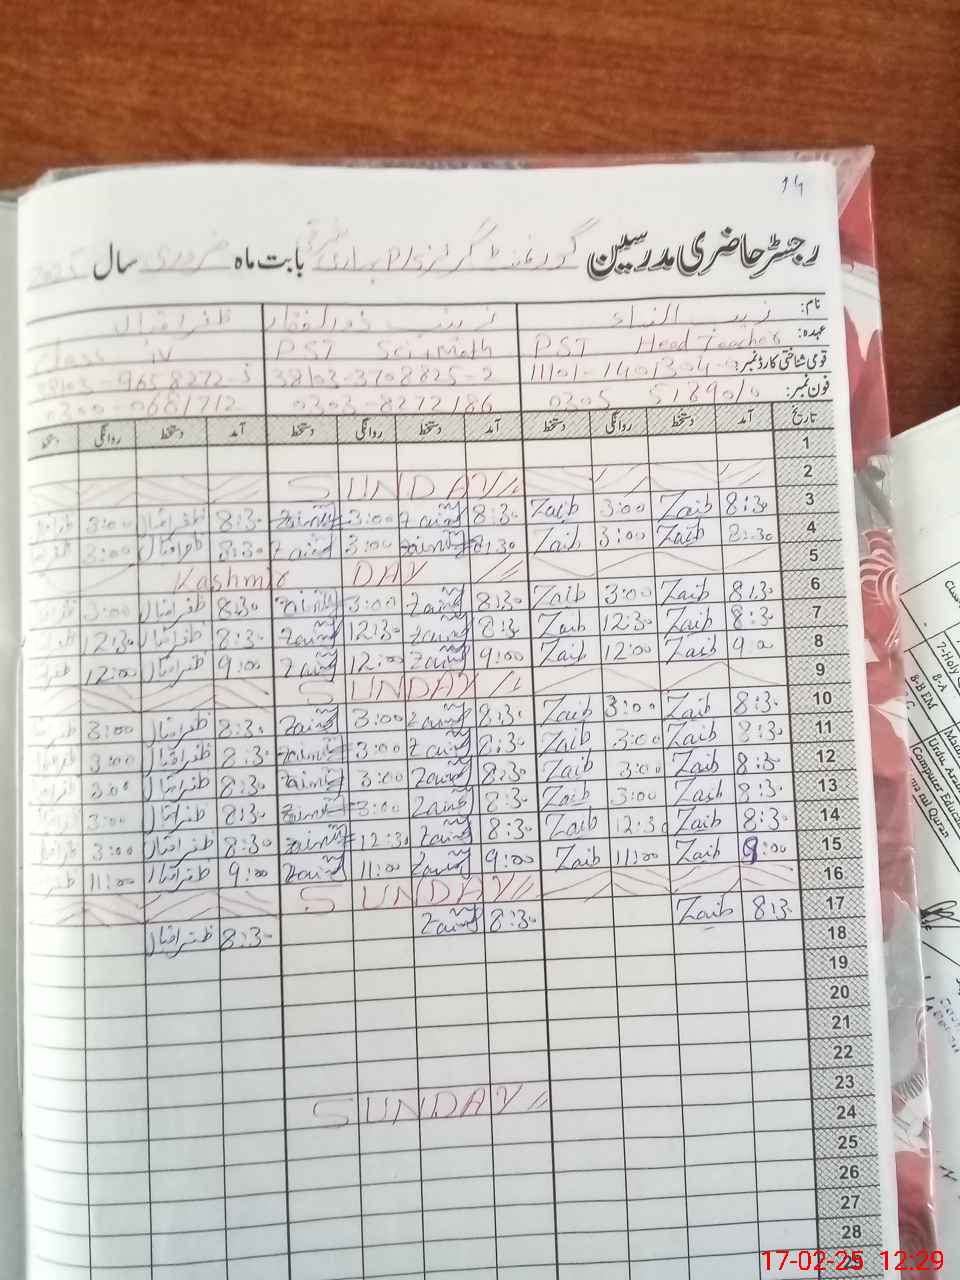 14
رجسٹر حاضری مدرسین گورنمنٹ گرلز P/S بابت ماہ فروری سال
نام: زیب النساء زینب ذوالفقار ظفر اقبال
عہدہ: PST Head Teacher PST Sci Math Class iv
قومی شناختی کارڈ نمبر 38103-3708825-2
فون نمبر: 0305 5189010 0303-8272186 0300-0681712
تاریخ آمد دستخط روانگی دستخط آمد دستخط روانگی دستخط آمد دستخط روانگی دستخط
1
2 SUNDAY
3 8:30 Zaib 3:00 Zaib 8:30 Zainab 3:00 Zainab 8:30 ظفر اقبال 3:00
4 8:30 Zaib 3:00 Zaib 8:30 Zainab 3:00 Zainab 8:30 ظفر اقبال 3:00
5 Kashmir DAY
6 8:30 Zaib 3:00 Zaib 8:30 Zainab 3:00 Zainab 8:30 ظفر اقبال 3:00
7 8:30 Zaib 12:30 Zaib 8:30 Zainab 12:30 Zainab 8:30 ظفر اقبال 12:30
8 9:00 Zaib 12:00 Zaib 9:00 Zainab 12:00 Zainab 9:00 ظفر اقبال 12:00
9 SUNDAY
10 8:30 Zaib 3:00 Zaib 8:30 Zainab 3:00 Zainab 8:30 ظفر اقبال 3:00
11 8:30 Zaib 3:00 Zaib 8:30 Zainab 3:00 Zainab 8:30 ظفر اقبال 3:00
12 8:30 Zaib 3:00 Zaib 8:30 Zainab 3:00 Zainab 8:30 ظفر اقبال 3:00
13 8:30 Zaib 3:00 Zaib 8:30 Zainab 3:00 Zainab 8:30 ظفر اقبال 3:00
14 8:30 Zaib 12:30 Zaib 8:30 Zainab 12:30 Zainab 8:30 ظفر اقبال 3:00
15 9:00 Zaib 11:00 Zaib 9:00 Zainab 11:00 Zainab 9:00 ظفر اقبال 11:00
16 SUNDAY
17 8:30 Zaib 8:30 Zainab 8:30 ظفر اقبال
18
19
20
21
22
23 SUNDAY
24
25
26
27
28
29
7-Holy
8-A
8-B EM
Urdu,
Computer Education
Quran
17-02-25 12:29